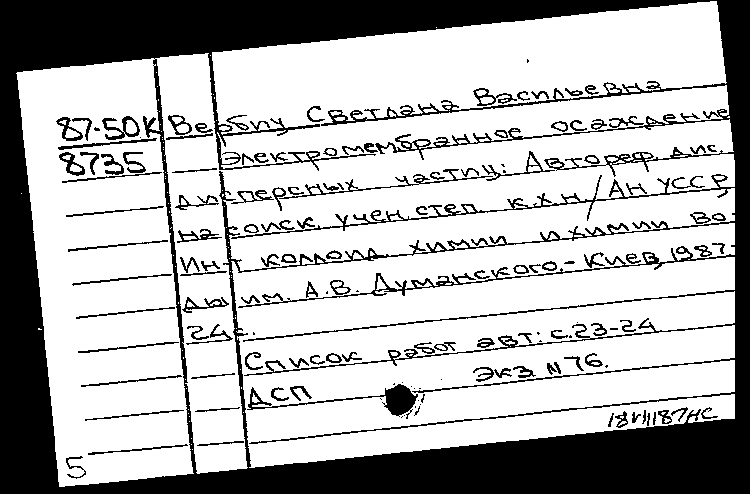 87-50К Вербпу Светлана Васильевна
8735 Электромембранное осаждение
дисперсных частиц: Автореф. дис.
на соиск. учен. степ. к.х.н. / АН УССР,
Ин-т коллоид. химии и химии во-
ды им. А.В. Думанского.- Киев, 1987.-
24с.
Список работ авт.: с.23-24
ДСП экз N 76.
18VIII87НС
5